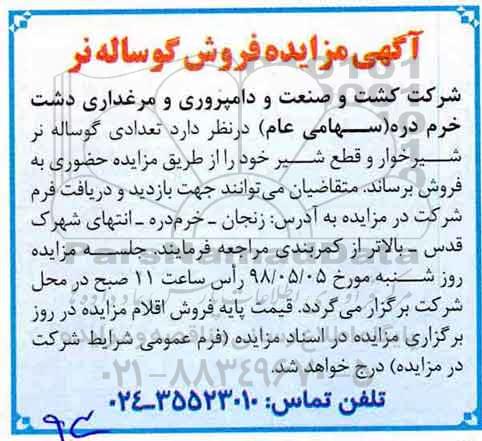 آگهی مزایده فروش گوساله نر
شرکت کشت و صنعت و دامپروری و مرغداری دشت
خرم دره(سهامی عام) درنظر دارد تعدادی گوساله نر
شیرخوار و قطع شیر خود را از طریق مزایده حضوری به
فروش برساند. متقاضیان می‌توانند جهت بازدید و دریافت فرم
شرکت در مزایده به آدرس: زنجان ـ خرم‌دره ـ انتهای شهرک
قدس ـ بالاتر از کمربندی مراجعه فرمایند. جلسه مزایده
روز شنبه مورخ ۹۸/۰۵/۰۵ رأس ساعت ۱۱ صبح در محل
شرکت برگزار می‌گردد. قیمت پایه فروش اقلام مزایده در روز
برگزاری مزایده در اسناد مزایده (فرم عمومی شرایط شرکت
در مزایده) درج خواهد شد.
۰۲۱-۸۸۳۴۹۶۷۰-۵
تلفن تماس: ۳۵۵۲۳۰۱۰-۰۲۴